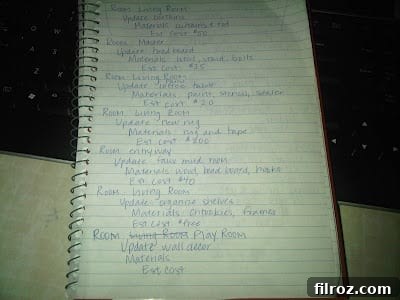 Room: Living Room
Update: curtains
Materials: curtains & rod
Est. Cost: $50
Room: Master
Update: head board
Materials: wood, stain, bolts
Est cost: $25
Room: Living Room
Update: coffee table
Materials: paint, stencil, sealer
Est cost: $20
Room: Living Room
Update: new rug
Materials: rug and tape
Est cost: $200
Room: entryway
Update: faux mud room
Materials: wood, bead board, hooks
Est cost: $40
Room: Living Room
Update: organize shelves
Materials: chhatchkies, frames
Est cost: $free
Room: Living Room Play Room
Update: wall decor
Materials
Est cost
filroz.com